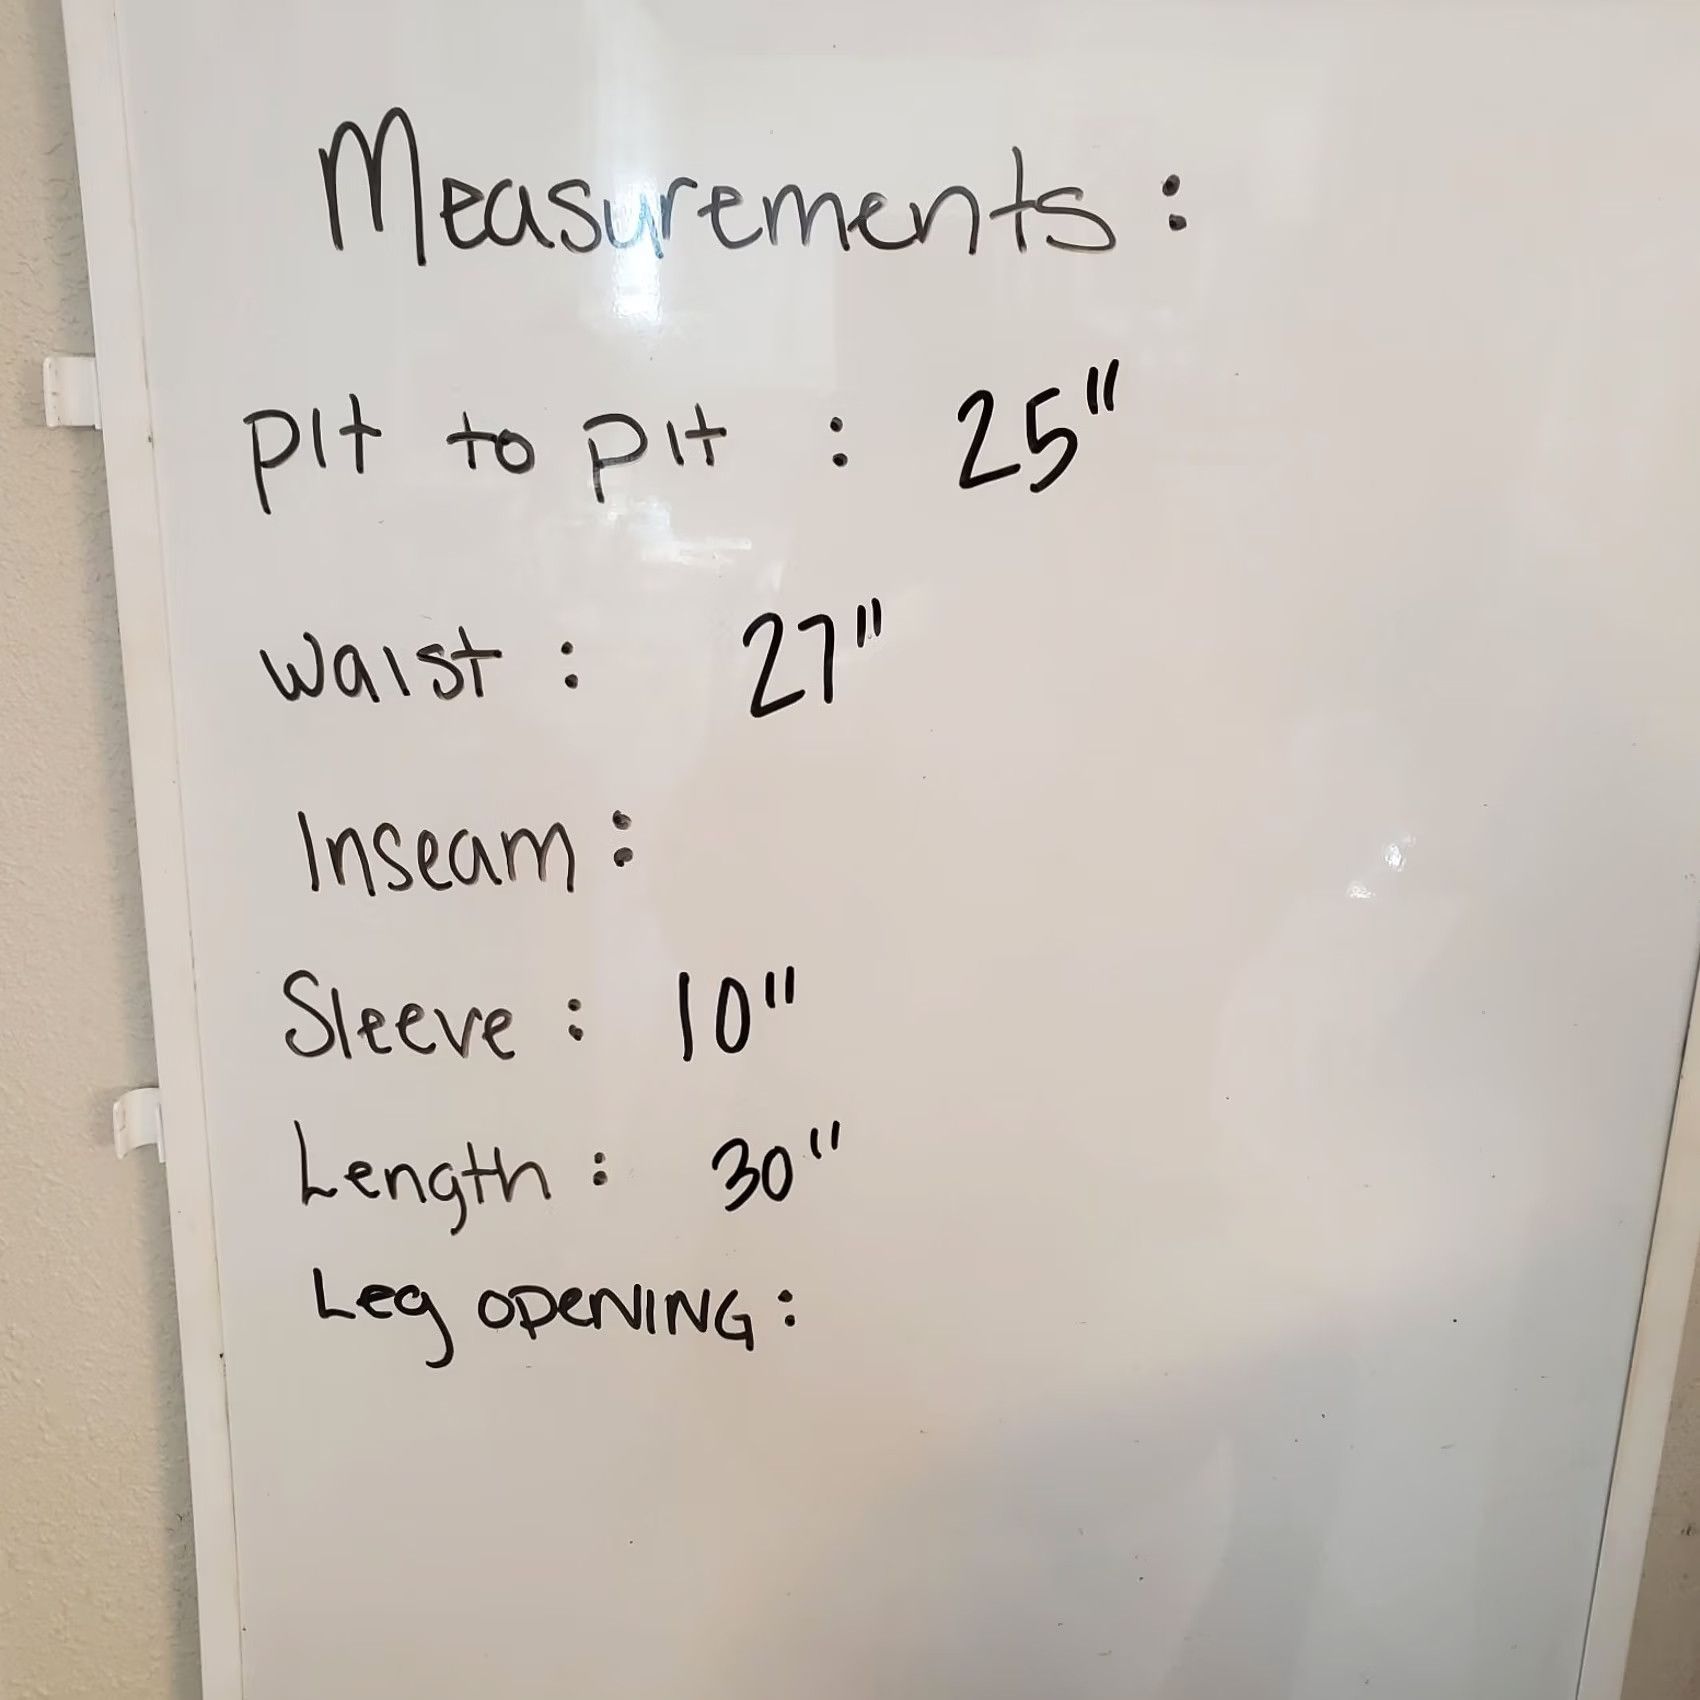 Measurements:
Pit to pit : 25"
Waist : 27"
Inseam :
Sleeve : 10"
Length : 30"
Leg OPeNING :